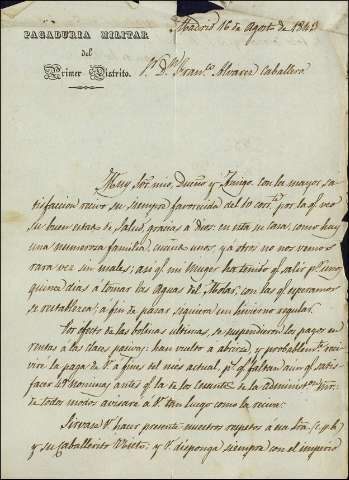 PAGADURIA MILITAR
del
Primer Distrito.
Madrid 16 de Agosto de 1843
Sr. Dn. Franco. Alvarez Caballero
Muy Sor. mio, Dueño y Amigo: con la mayor sa-
tisfaccion recivo su siempre favorecida del 10 corte. por la qe. veo
su buen estado de salud, gracias á Dios: en esta su casa, como hay
una numerosa familia, unos, ya otros no nos vemos
rara vez sin males; asi qe. mi Muger ha tenido qe. salir pr. unos
quince dias á tomar las aguas del Molar, con las qe. esperamos
se restablezca; á fin de pasar siquiera un hivierno regular.
Por efecto de las bolinas ultimas, se suspendieron los pagos en
rentas á las clases pasivas: han vuelto á abrirse, y probablemte. reci-
viré la paga de V. á fines del mes actual, ps. qe. faltan aun qe. satis-
facer Nominas antes qe. la de los cesantes de la administon. Mir.
de todos modos avisaré á V. tan luego como la reciva.
Sirvase V. hacer presente nuestros respetos a su Sra. (c. p. b.)
y su Caballerito Nieto; y V. disponga siempre con el imperio